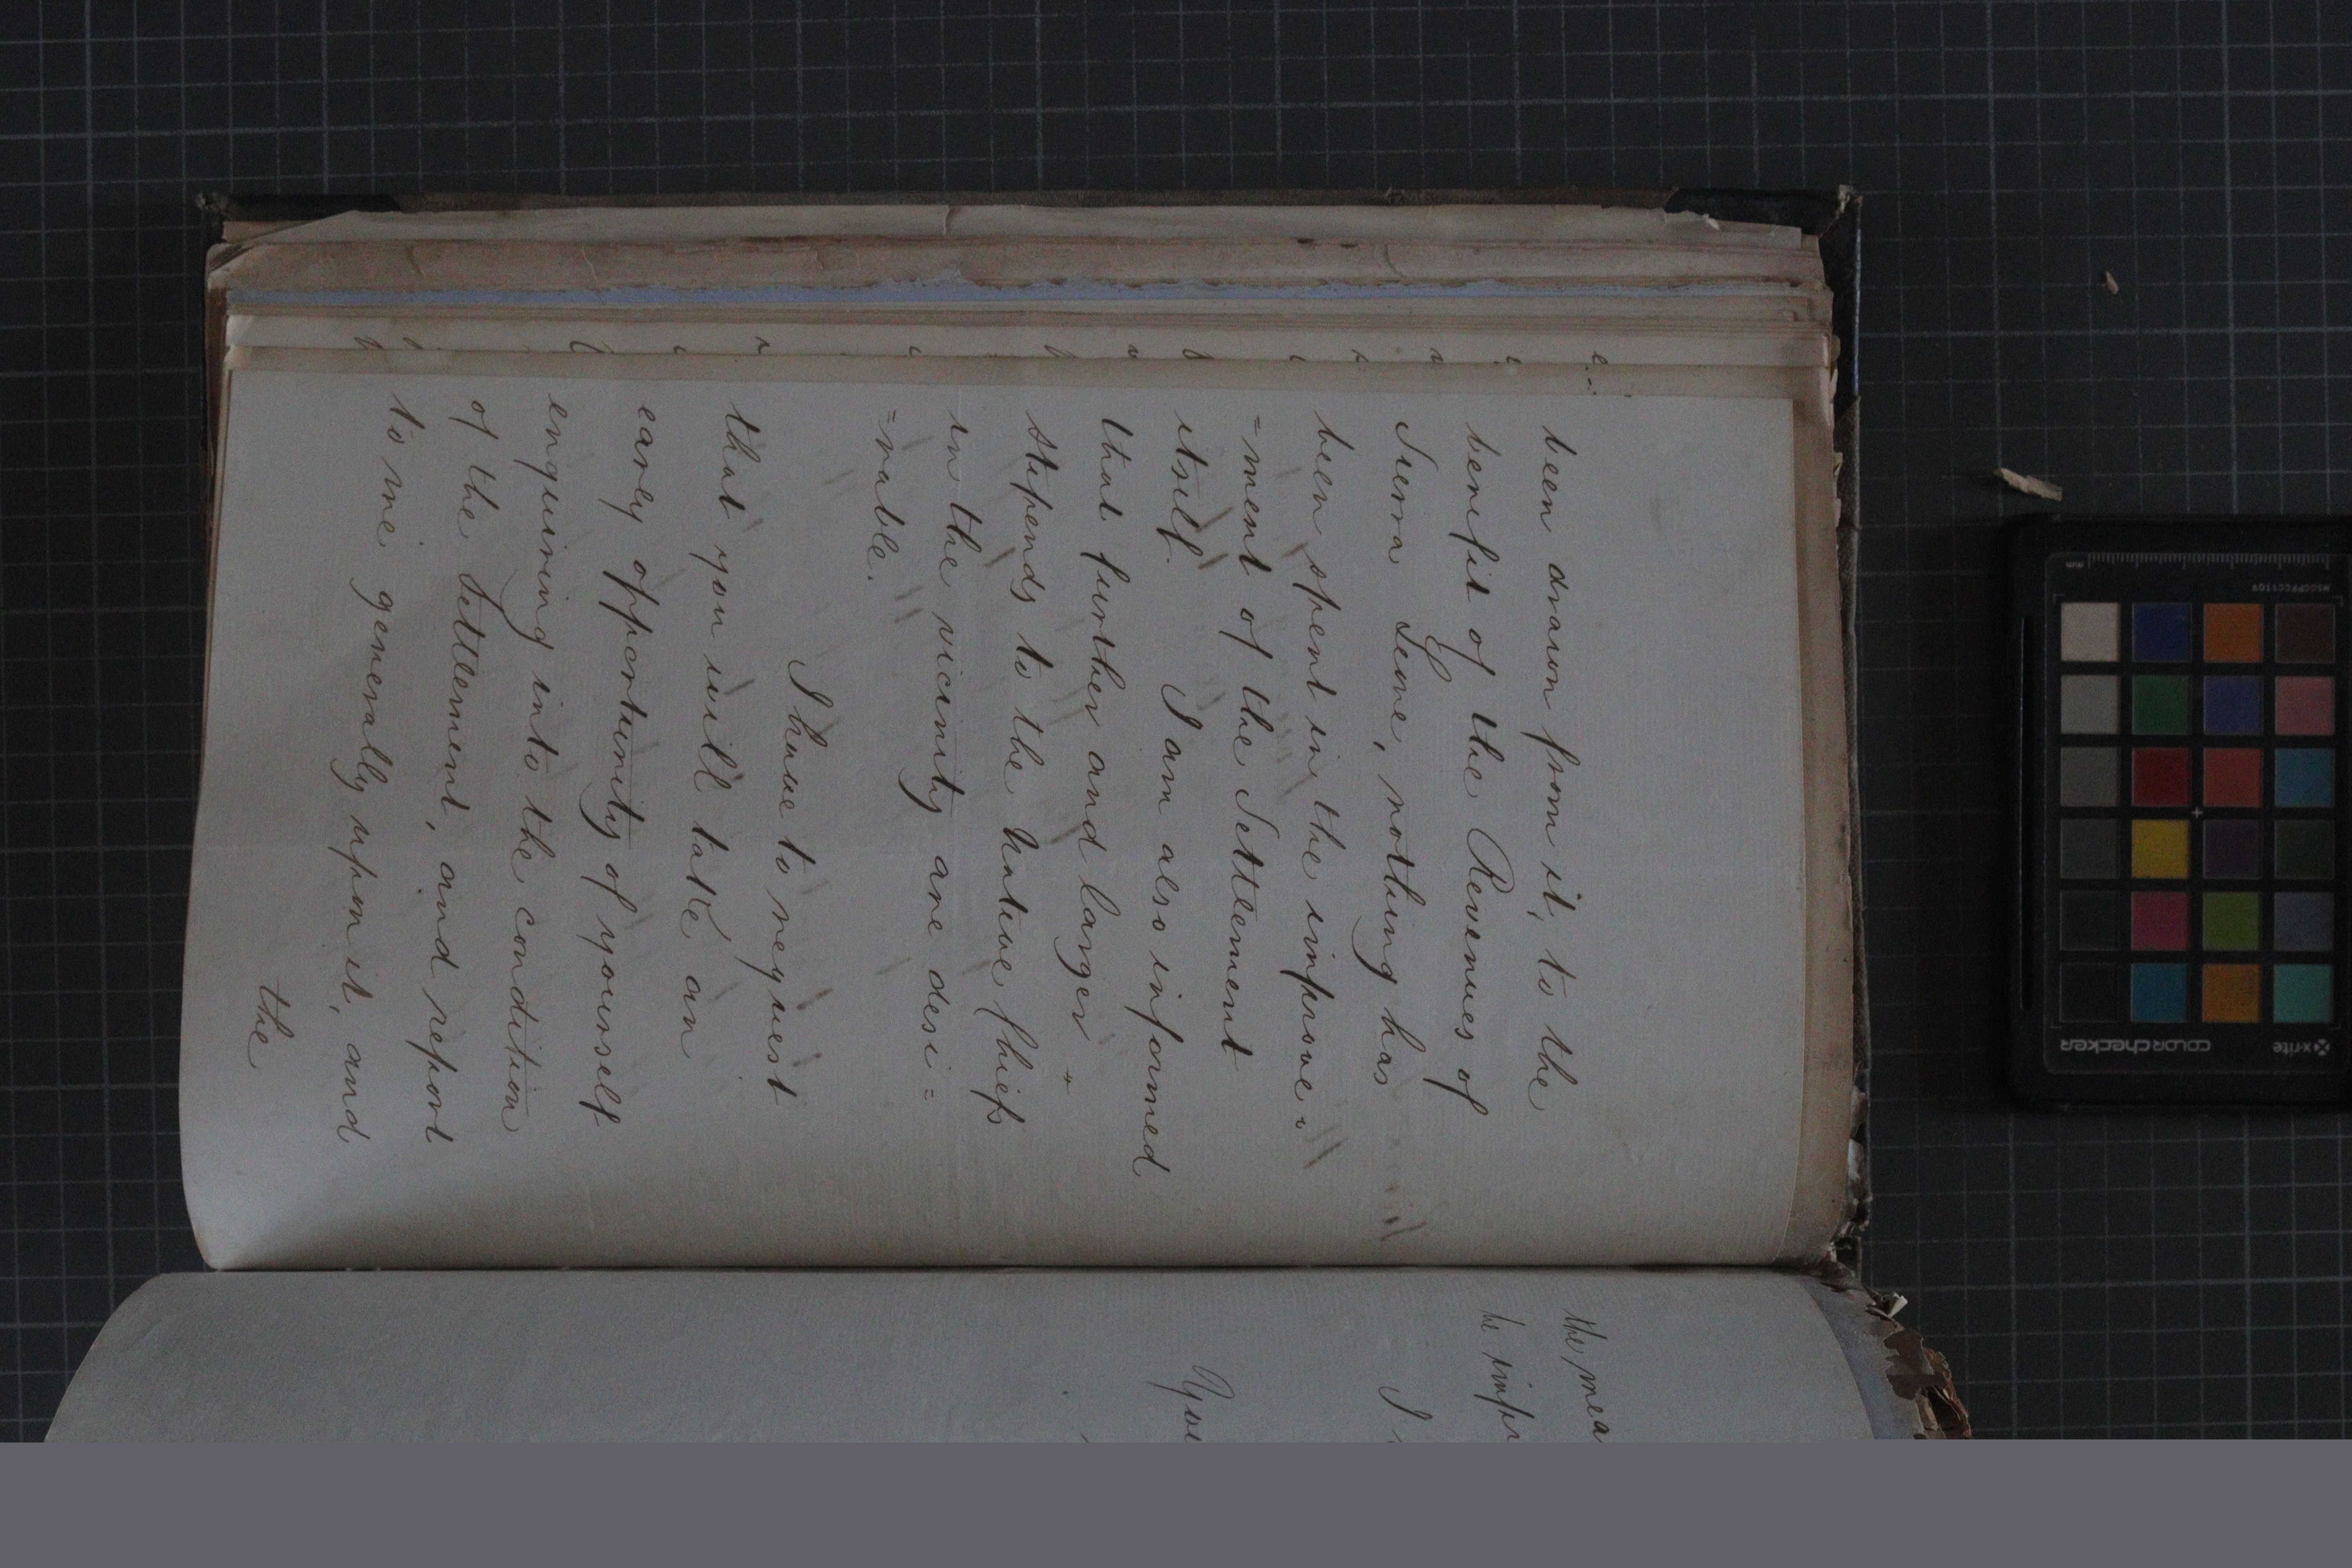 been drawn from it, to the
benefit of the Revenues of
Sierra Leone, nothing has
been spent in the improve=
=ment of the Settlement
itself. I am also informed
that further and larger
stipends to the Native Chiefs
in the vicinity are desi=
=rable.
I have to request
that you will take an
early opportunity of yourself
enquiring into the condition
of the Settlement, and report
to me generally upon it, and
the
the mea
he impr
I
You
x-rite
colorchecker
MSCCPPCC1109
mm